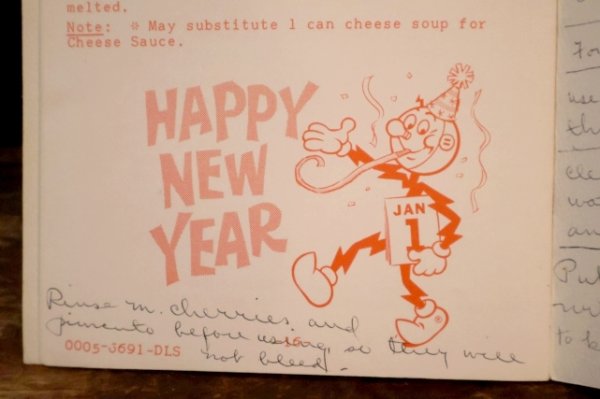 melted.
Note: * May substitute 1 can cheese soup for
Cheese Sauce.
HAPPY
NEW
YEAR
JAN
1
Rinse m. cherries and
pimento before using, so they will
not bleed.
0005-3691-DLS
For
use
th
cle
wa
an
Pu
to